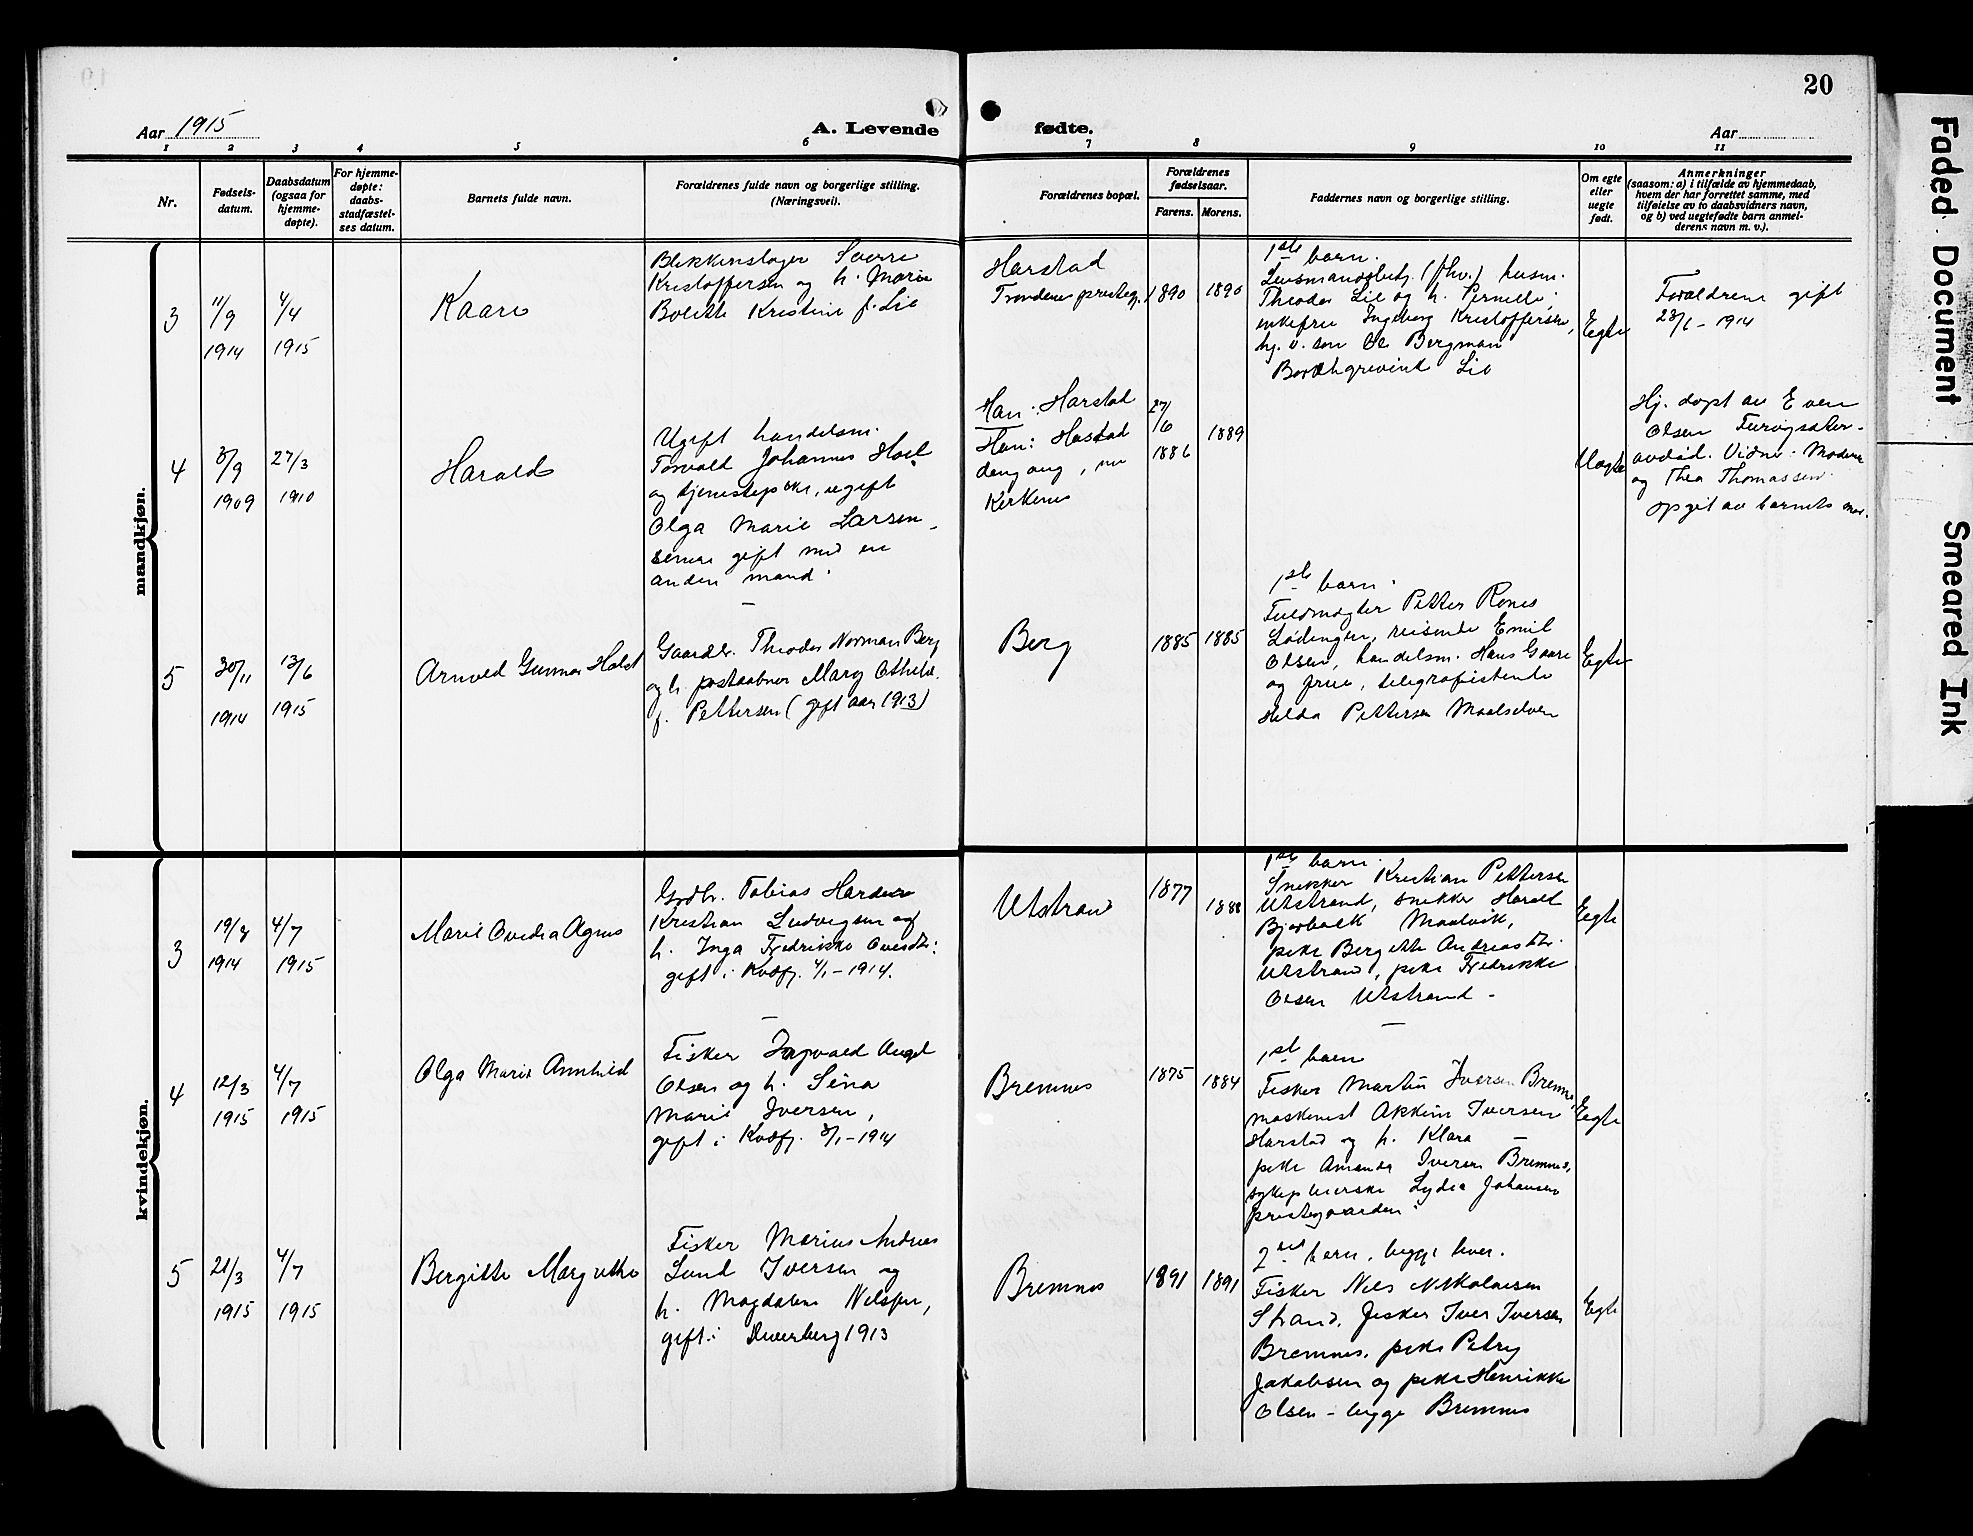 20
Aar 1915
A. Levende fødte.
Aar
1 2 3 4 5 6 7 8 9 10 11
Nr.
Fødsels-
datum.
Daabsdatum
(ogsaa for
hjemme-
døpte).
For hjemme-
døpte:
daabs-
stadfæstel-
ses datum.
Barnets fulde navn.
Forældrenes fulde navn og borgerlige stilling.
(Næringsvei).
Forældrenes bopæl.
Forældrenes
fødselsaar.
Farens. Morens.
Faddernes navn og borgerlige stilling.
Om egte
eller
uegte
født.
Anmerkninger
(saasom: a) i tilfælde av hjemmedaab,
hvem der har forrettet samme, med
tilføielse av to daabsvidners navn,
og b) ved uegtefødte barn anmel-
derens navn m. v.).
mandkjøn.
3
11/9
1914
4/4
1915
Kaare
Blikkenslager Sverre
Kristoffersen og h. Marie
Bolette Kristine f. Lie
Harstad
Trondenes presteg.
1890
1890
1ste barn.
Theodor Lie og h. Pernelle;
enkefrue Ingeborg Kristoffersen,
Bergman
Lie
Egte
Forældrene gift
23/1 - 1914
4
3/9
1909
27/3
1910
Harald
Ugift handelsm.
Torvald Johannes Hall
og tjenestepike, ugift
Olga Marie Larsen -
senere gift med en
anden mand.
Han: Harstad
Hun: Harstad
dengang, nu
Kirkenes
27/6
1886
1889
Uegte
Hj. døpt av Even
Olsen
avdød. Vidner: Moderen
og Thea Thomassen.
opgit av barnets mor.
5
30/11
1914
13/6
1915
Arnold Gunnar Holst
Gaardbr. Theodor Norman Berg
og h. postaabner Mary Othelie
f. Pettersen (gift aar 1913)
Berg
1885
1885
1ste barn.
Fuldmægtig Petter Rones
Lødingen, reisende Emil
Olsen, handelsm. Hans Gaare
og frue, telegrafistinde
Halda Pettersen Maalselven
Egte
kvindekjøn.
3
19/8
1914
4/7
1915
Marie Ovedia Agnes
Grdbr. Tobias Harder
Kristian Ludvigsen og
h. Inga Fredrikke Ovesdtr.
gift i Kvæfj. 4/1 - 1914.
Utstrand
1877
1888
1ste barn.
Snekker Kristian Pettersen
Utstrand, snekker Harald
Maalvik,
pike Bergitte Andreasdtr.
Utstrand, pike Fredrikke
Olsen Utstrand -
Egte
4
12/3
1915
4/7
1915
Olga Marie Annhild
Fisker Ingvald Angel
Olsen og h. Sina
Marie Iversen,
gift i Kvæfj. 3/1 - 1914
Bremnes
1875
1884
1ste barn
Fisker Martin Iversen Bremnes,
maskinist Akkim Iversen
Harstad og h. Klara -
pike Amanda Iversen Bremnes,
sykepleierske Lydia Johansen
prestegaarden.
Egte
5
21/3
1915
4/7
1915
Bergitte Margrethe
Fisker Marius Andreas
Lund Iversen og
h. Magdalene Nelsen,
gift i Dverberg 1913
Bremnes
1891
1891
2det barn, begge lever.
Fisker Nels Nikolaisen
Strand, fisker Iver Iversen
Bremnes, pike Petry
Jakobsen og pike Henrikke
Olsen - begge Bremnes
Egte
Faded Document
Smeared Ink